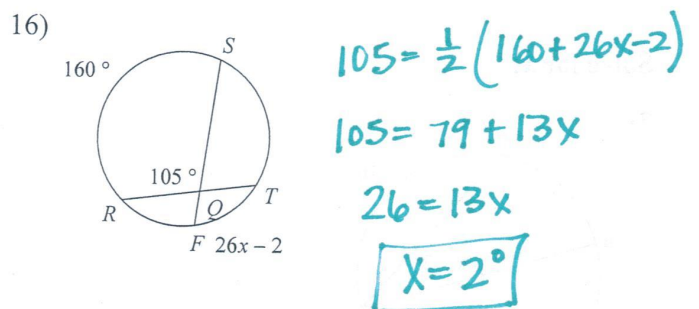 16)
S
160 °
105 °
R
Q
T
F 26x – 2
105 = 1/2 (160 + 26x – 2)
105 = 79 + 13x
26 = 13x
x = 2°